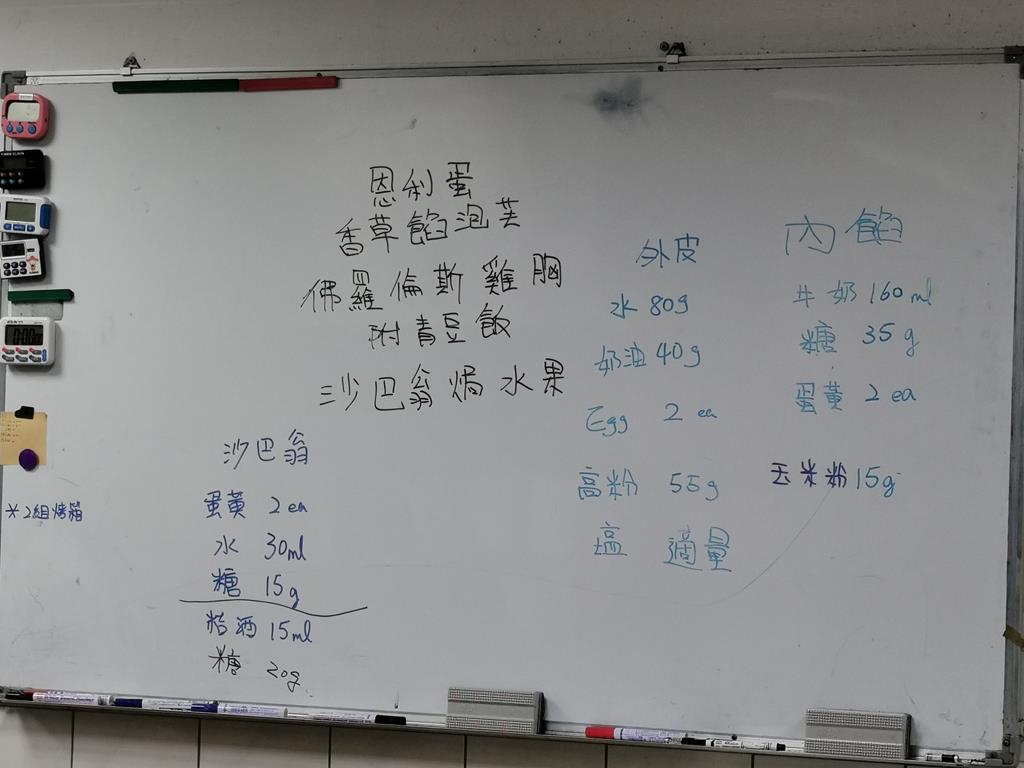 恩利蛋
香草餡泡芙
佛羅倫斯雞胸
附青豆飯
沙巴翁焗水果
沙巴翁
蛋黃 2ea
水 30ml
糖 15g
酒 15ml
糖 20g
*2組烤箱
外皮
水 80g
奶油 40g
Egg 2 ea
高粉 55g
塩 適量
內餡
牛奶 160ml
糖 35g
蛋黃 2 ea
玉米粉 15g